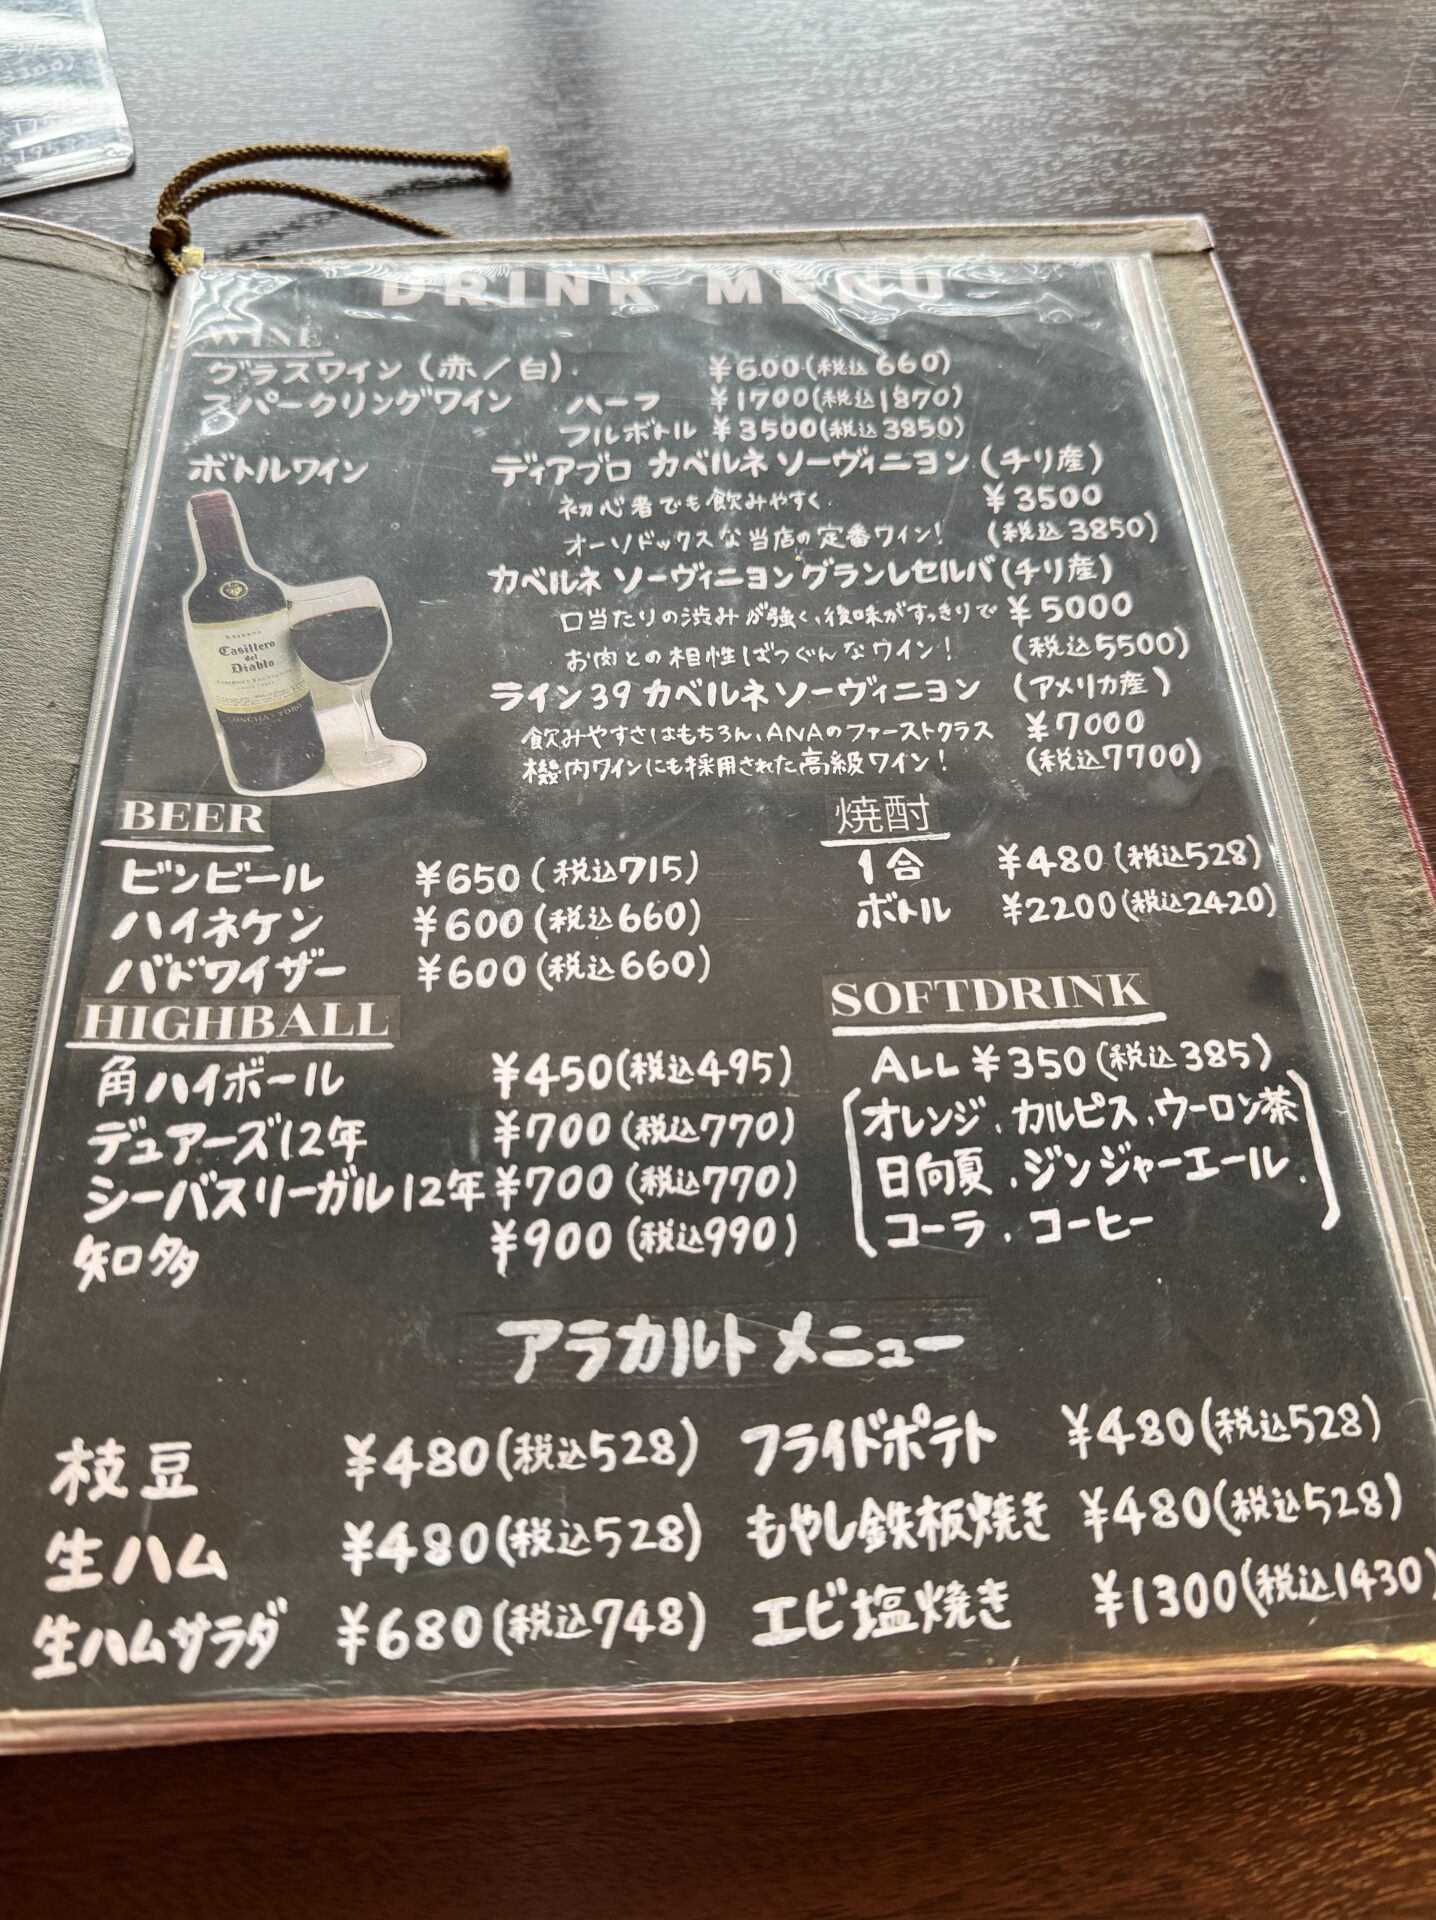 DRINK MENU
WINE
グラスワイン (赤/白). ¥600(税込660)
スパークリングワイン ハーフ ¥1700(税込1870)
フルボトル ¥3500(税込3850)
ボトルワイン ディアブロ カベルネ ソーヴィニヨン (チリ産)
初心者でも飲みやすく ¥3500
オーソドックスな当店の定番ワイン! (税込3850)
カベルネ ソーヴィニヨングランレセルバ (チリ産)
口当たりの渋みが強く、後味がすっきりで ¥5000
お肉との相性ばつぐんなワイン! (税込5500)
ライン39 カベルネソーヴィニヨン (アメリカ産)
飲みやすさはもちろん、ANAのファーストクラス ¥7000
機内ワインにも採用された高級ワイン! (税込7700)
RESERVA
Casillero
del
Diablo
CABERNET SAUVIGNON
BEER
ビンビール ¥650(税込715)
ハイネケン ¥600(税込660)
バドワイザー ¥600(税込660)
焼酎
1合 ¥480(税込528)
ボトル ¥2200(税込2420)
HIGHBALL
角ハイボール ¥450(税込495)
デュアーズ12年 ¥700(税込770)
シーバスリーガル12年 ¥700(税込770)
知多 ¥900(税込990)
SOFTDRINK
ALL ¥350(税込385)
オレンジ、カルピス、ウーロン茶
日向夏、ジンジャーエール、
コーラ、コーヒー
アラカルトメニュー
枝豆 ¥480(税込528) フライドポテト ¥480(税込528)
生ハム ¥480(税込528) もやし鉄板焼き ¥480(税込528)
生ハムサラダ ¥680(税込748) エビ塩焼き ¥1300(税込1430)